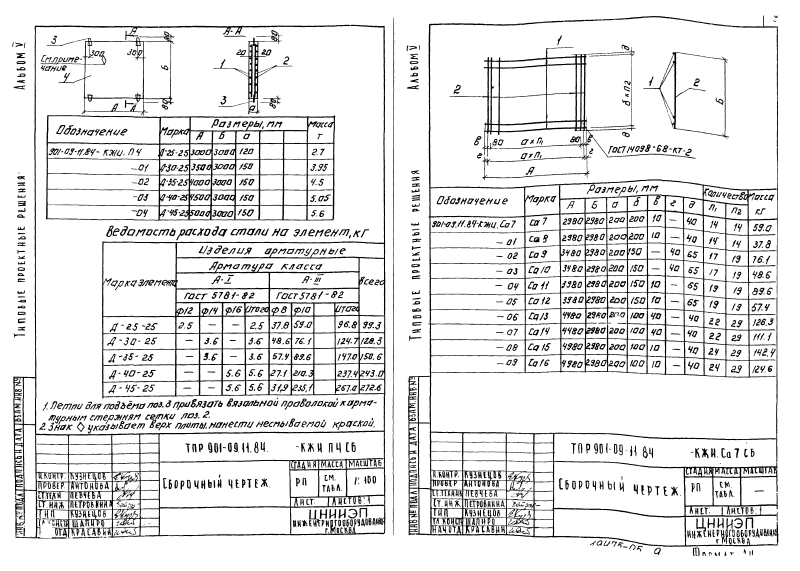 Альбом V
Типовые проектные решения
3
А
80
300
300
См. примечание
4
Б
80
А
А-А
80
20
20
1
2
3
80
а
Обозначение Марка Размеры, мм Масса
А Б а т
901-09-11.84-КЖИ.П4 Д-25-25 3000 3000 120 2.7
-01 Д-30-25 3500 3000 150 3.95
-02 Д-35-25 4000 3000 150 4.5
-03 Д-40-25 4500 3000 150 5.05
-04 Д-45-25 5000 3000 150 5.6
Ведомость расхода стали на элемент, кг
Марка элемента Изделия арматурные Всего
Арматура класса
А-I А-III
Гост 5781-82 Гост 5781-82
ф12 ф14 ф16 Итого ф8 ф10 Итого
Д-25-25 2.5 — — 2.5 37.8 59.0 96.8 99.3
Д-30-25 — 3.6 — 3.6 48.6 76.1 124.7 128.3
Д-35-25 — 3.6 — 3.6 57.4 89.6 147.0 150.6
Д-40-25 — — 5.6 5.6 27.1 210.3 237.4 243.0
Д-45-25 — — 5.6 5.6 31,9 235,1 267.0 272.6
1. Петли для подъёма поз.3 привязать вязальной проволокой к арма-
турным стержням сетки поз. 2.
2. Знак ◇ указывает верх плиты, нанести несмываемой краской.
ТПР 901-09-11.84. -КЖИ П4 СБ
Сборочный чертеж.
Стадия Масса Масштаб
РП См. табл. 1:100
Лист. Листов:1
ЦНИИЭП
инженерного оборудования
г. Москва
Н.контр. Кузнецов
Провер Антонова
Ст.техн Певчева
Ст. инж Петровнина
ГИП Кузнецов
Гл.конст Шапиро
Нач.отд Красавин
Инв.№ подл. Подпись и дата Взам.инв.№
Альбом V
Типовые проектные решения
1
2
в
80
а×п1
80
г
А
д
б×п2
д
ГОСТ 14098-68-КТ-2
1
2
Б
Обозначение Марка Размеры, мм Количество Масса
А Б а б в г д п1 п2 кг
901-09.11.84-КЖИ.Са7 Са7 2980 2980 200 200 10 — 40 14 14 59.0
-01 Са8 2980 2980 200 200 10 — 40 14 14 37.8
-02 Са9 3480 2980 200 150 — 40 65 17 19 76.1
-03 Са10 3480 2980 200 150 — 40 65 17 19 48.6
-04 Са11 3980 2980 200 150 10 — 65 19 19 89.6
-05 Са12 3980 2980 200 150 10 — 65 19 19 57.4
-06 Са13 4480 2980 200 100 40 — 40 22 29 126.3
-07 Са14 4480 2980 200 100 40 — 40 22 29 111.1
-08 Са15 4980 2980 200 100 10 — 40 24 29 142,4
-09 Са16 4980 2980 200 100 10 — 40 24 29 124.6
ТПР 901-09-11 84 -КЖИ. Са7 СБ
Сборочный чертеж.
Стадия Масса Масштаб
РП См. табл. —
Лист. Листов:1
ЦНИИЭП
инженерного оборудования
г. Москва
Н.контр. Кузнецов
Провер Антонова
Ст.техник Певчева
Ст.инж Петровнина
ГИП Кузнецов
Гл.констр Шапиро
Нач.отд Красавин
Инв.№ подл. Подпись и дата Взам.инв.№
Формат